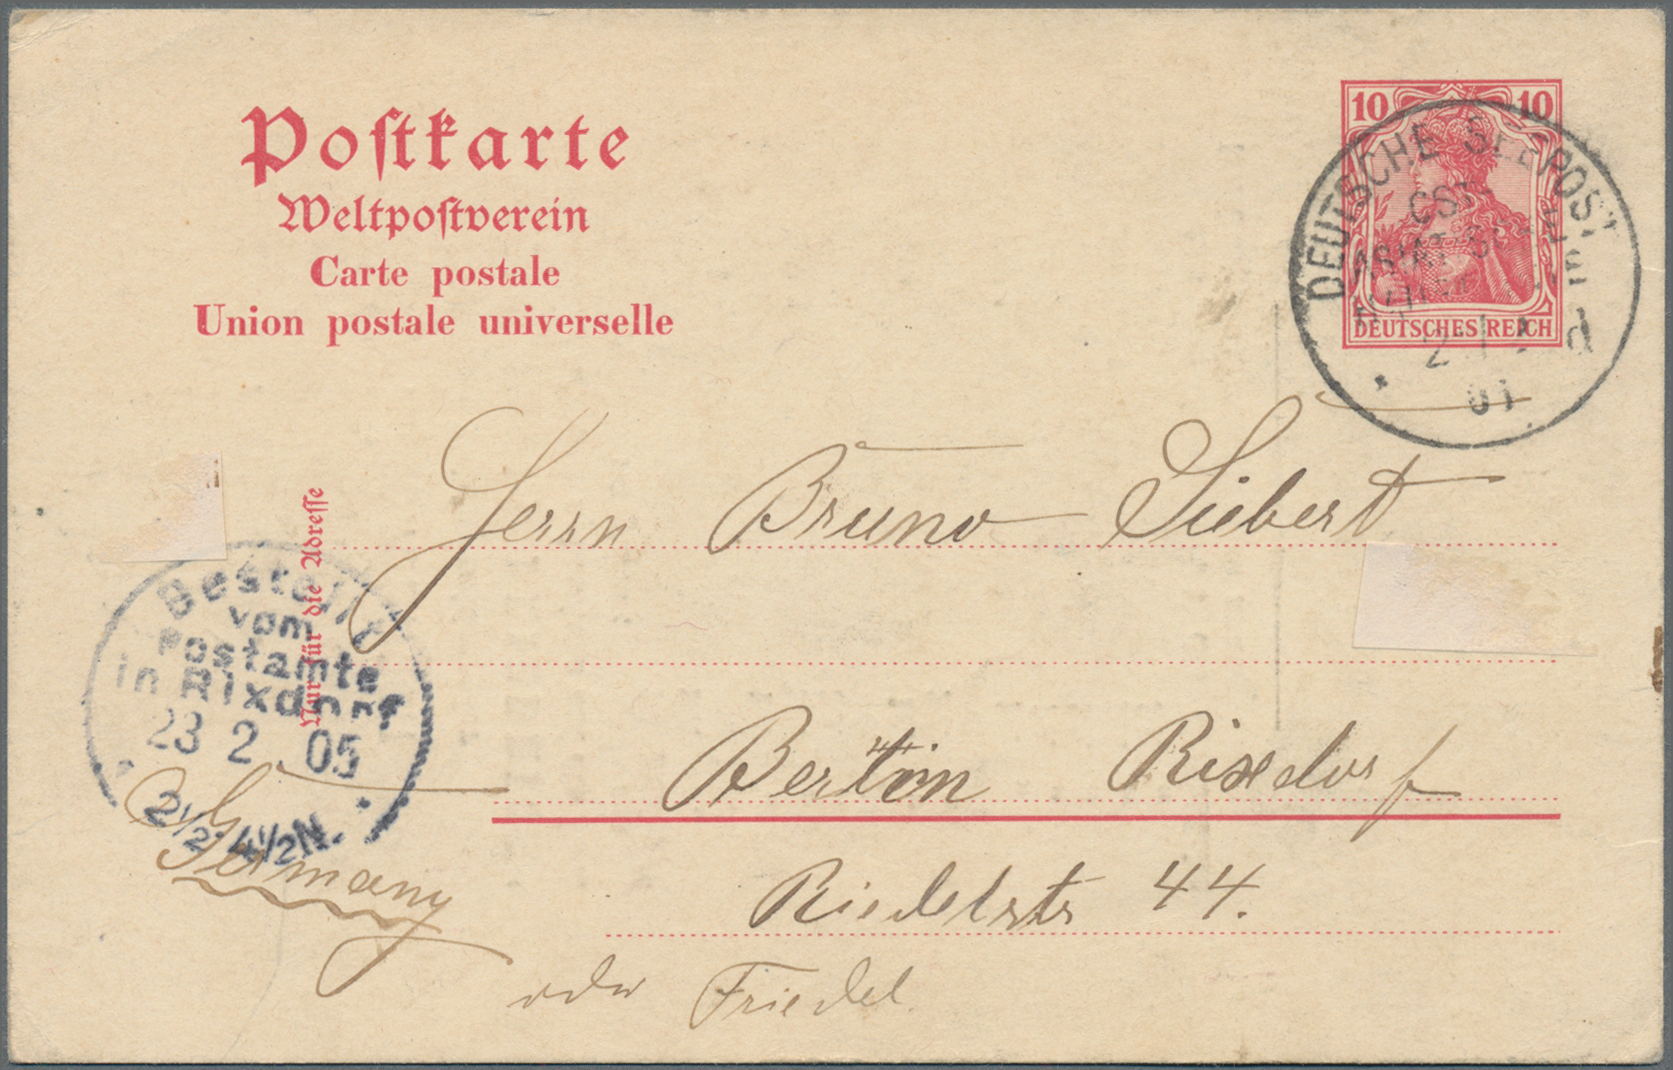 Postkarte
Weltpostverein
Carte postale
Union postale universelle
10 10
DEUTSCHES REICH
DEUTSCHE SEEPOST
d
Nur für die Adresse
Herrn Bruno Siebert
Berlin Rixdorf
Riedelstr 44.
oder Friedel
Germany
Bestellt
vom
Postamte
in Rixdorf
23 2 05
2½-4½N.